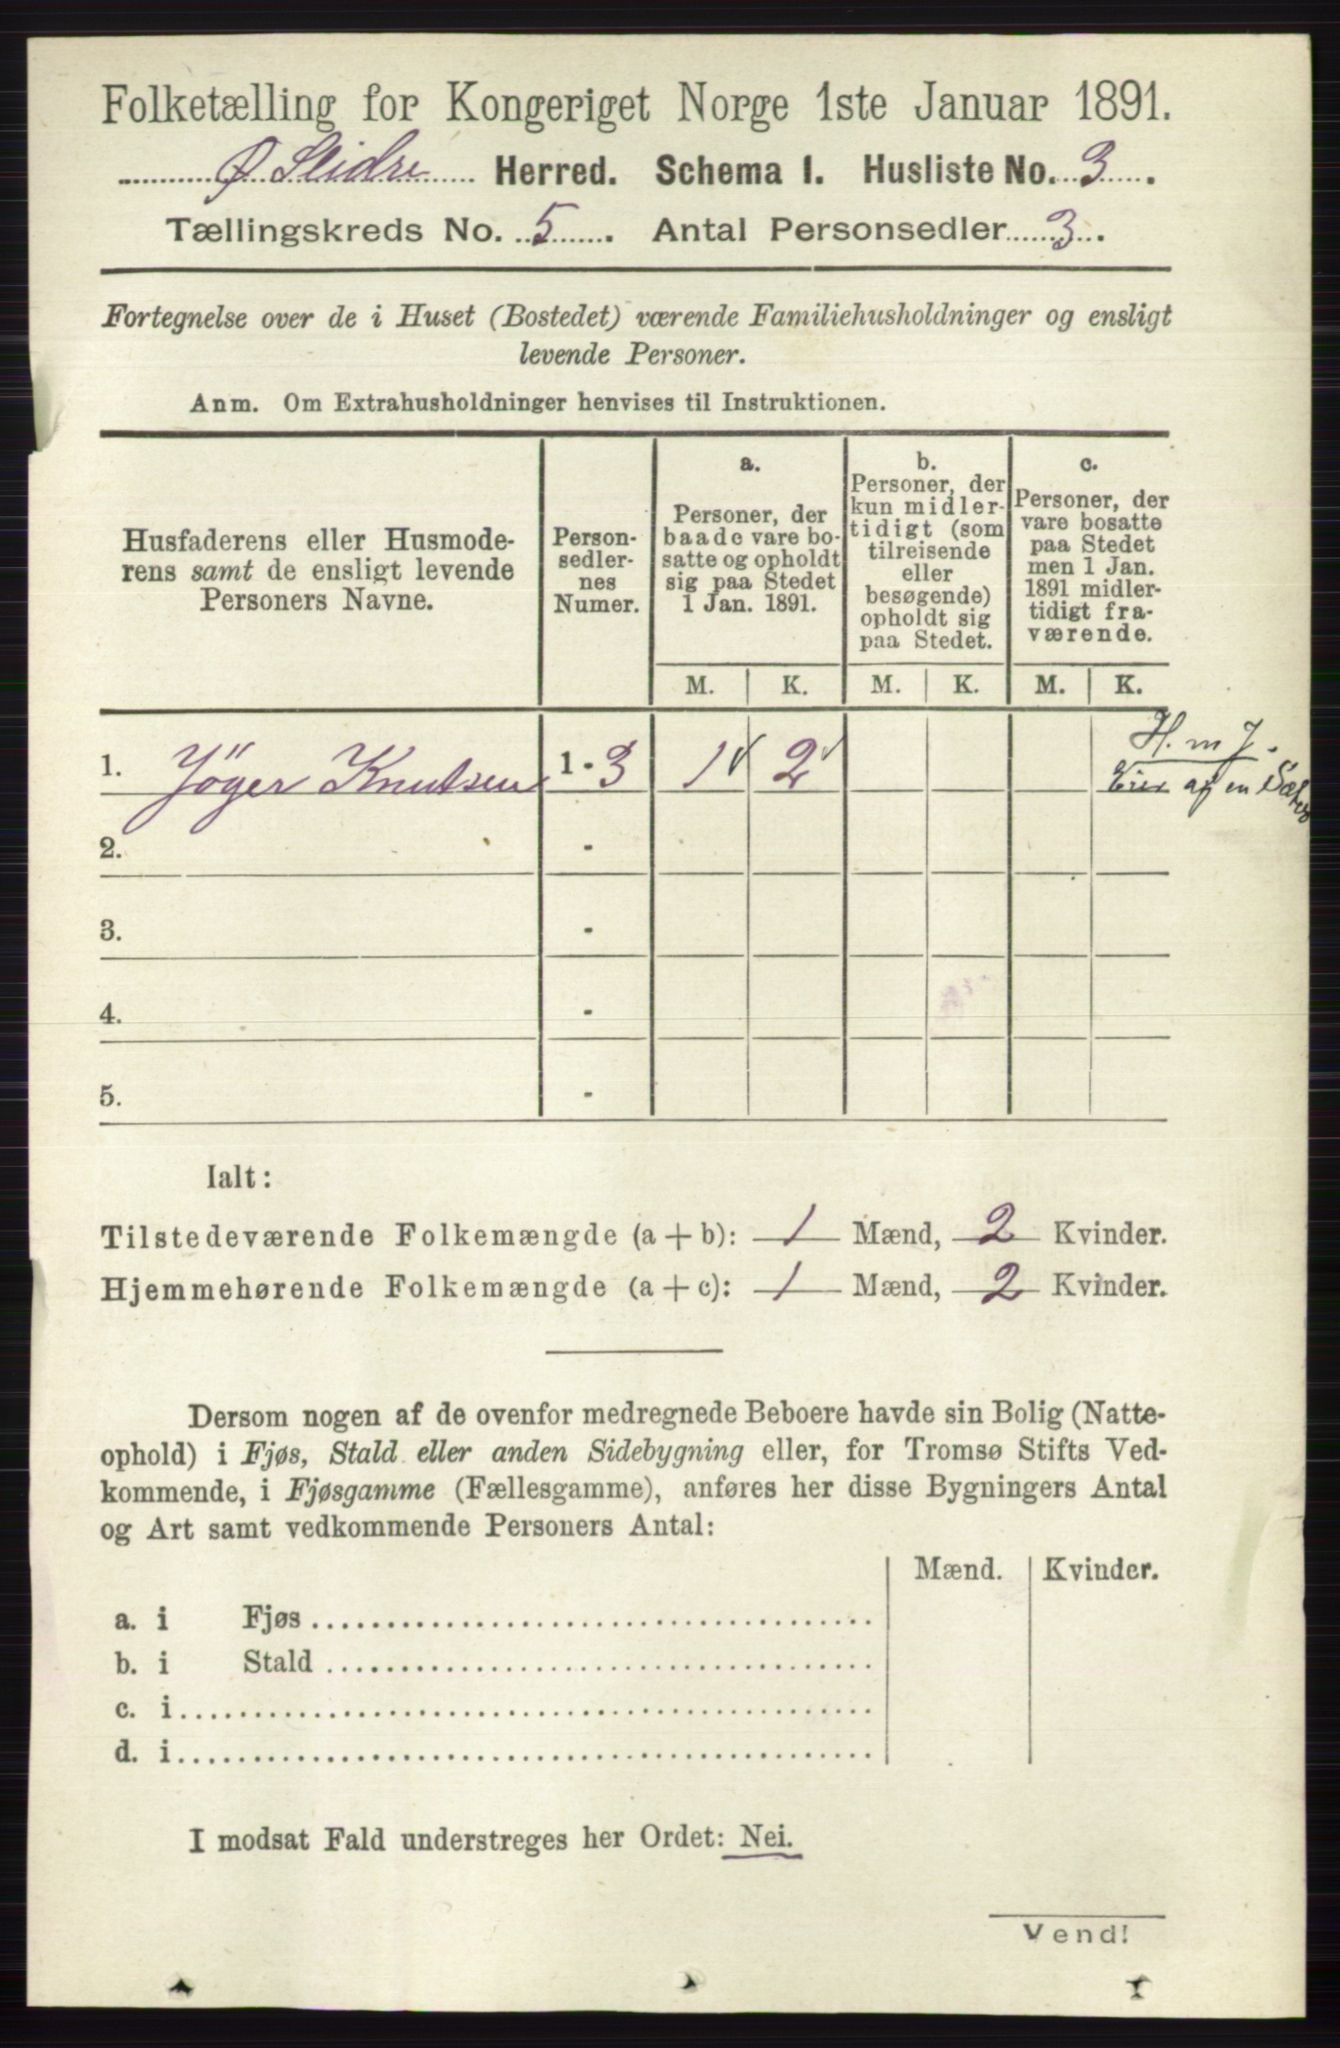 Folketælling for Kongeriget Norge 1ste Januar 1891.
Ø Slidre Herred. Schema 1. Husliste No. 3.
Tællingskreds No. 5. Antal Personsedler 3.
Fortegnelse over de i Huset (Bostedet) værende Familiehusholdninger og ensligt
levende Personer.
Anm. Om Extrahusholdninger henvises til Instruktionen.
Husfaderens eller Husmode-
rens samt de ensligt levende
Personers Navne.
Person-
sedler-
nes
Numer.
a.
Personer, der
baade vare bo-
satte og opholdt
sig paa Stedet
1 Jan. 1891.
b.
Personer, der
kun midler-
tidigt (som
tilreisende
eller
besøgende)
opholdt sig
paa Stedet.
c.
Personer, der
vare bosatte
paa Stedet
men 1 Jan.
1891 midler-
tidigt fra-
værende.
M. K. M. K. M. K.
H. m J.
1. Jöger Knutsen 1 - 3 1 2
Eier af en Sæter
2. -
3. -
4. -
5. -
Ialt:
Tilstedeværende Folkemængde (a + b): 1 Mænd, 2 Kvinder.
Hjemmehørende Folkemængde (a + c): 1 Mænd, 2 Kvinder.
Dersom nogen af de ovenfor medregnede Beboere havde sin Bolig (Natte-
ophold) i Fjøs, Stald eller anden Sidebygning eller, for Tromsø Stifts Ved-
kommende, i Fjøsgamme (Fællesgamme), anføres her disse Bygningers Antal
og Art samt vedkommende Personers Antal:
Mænd. Kvinder.
a. i Fjøs
b. i Stald
c. i
d. i
I modsat Fald understreges her Ordet: Nei.
Vend!